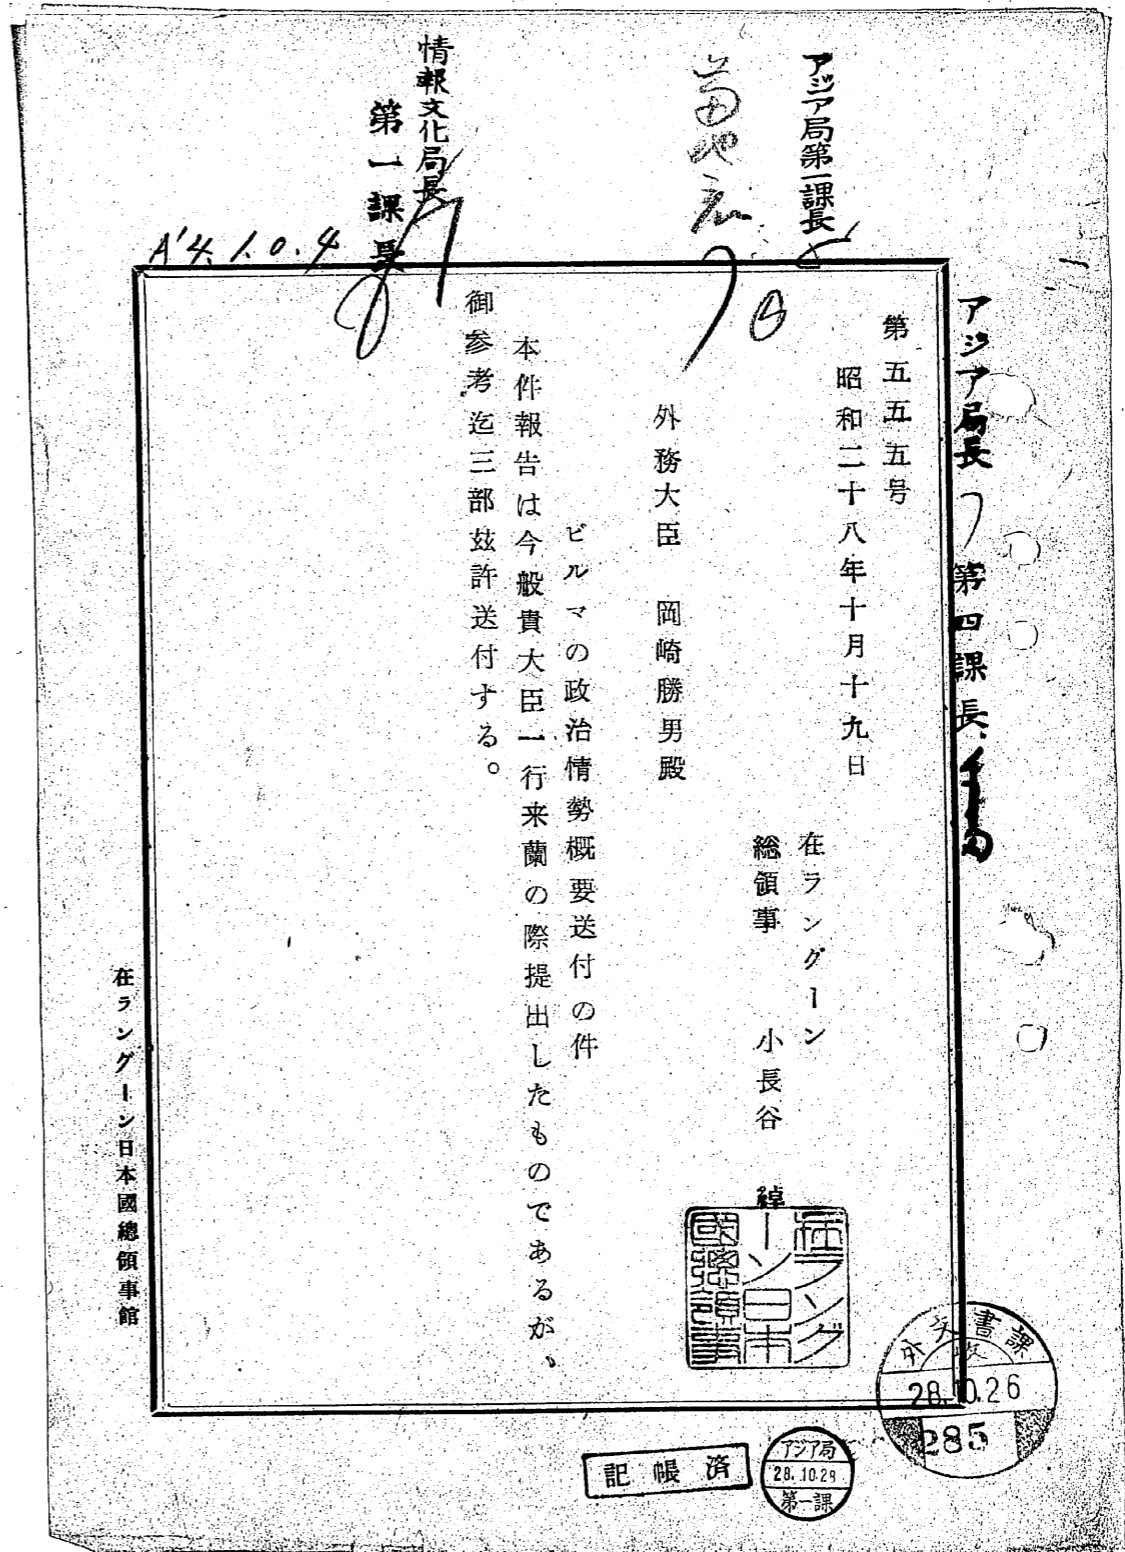 アジア局長
第四課長
アジア局第一課長
情報文化局長
第一課長
A'4.1.0.4
第五五五号
昭和二十八年十月十九日
在ラングーン
総領事 小長谷 綽
外務大臣 岡崎勝男殿
ビルマの政治情勢概要送付の件
本件報告は今般貴大臣一行来蘭の際提出したものであるが、
御参考迄三部玆許送付する。
在ラングーン日本國總領事館
在ラング
ーン日本
國總領事
文書課
28.10.26
285
記帳済
アジア局
28.10.29
第一課